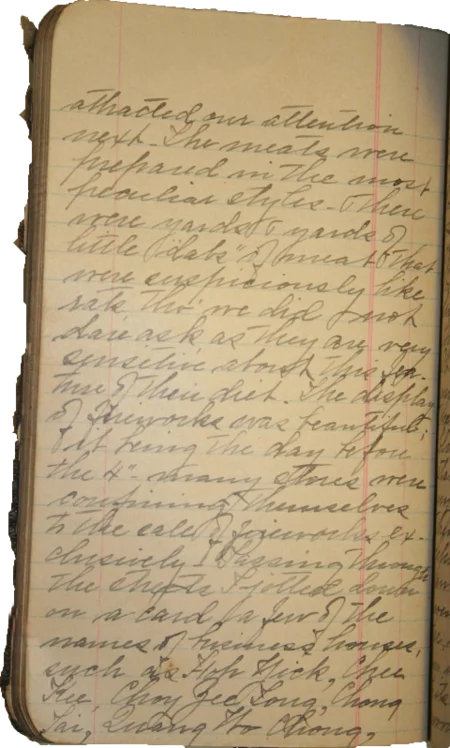 attracted our attention
next - The meats were
prepared in the most
peculiar styles - There
were yards & yards of
little "dabs" of meat that
were suspiciously like
rats tho' we did not
dare ask as they are very
sensitive about this fea-
ture of their diet. The display
of fireworks was beautiful;
& it being the day before
the 4" - many stores were
confining themselves
to the sale of fireworks ex-
clusively - Passing through
the streets I jotted down
on a card a few of the
names of business houses,
such as Hop Kick, Chee
Kee, Choy Jee Tong, Chong
Tai, Quang Wo Chong,